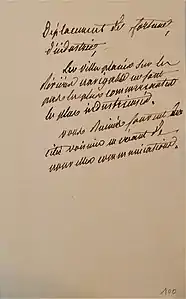 Déplacement des fortunes
d'industries
Les villes placées sur les
rivières navigables ne sont
pas les plus commerçantes
les plus industrieuses.
vous ruinés souvent des
cités voisines en créant de
nouvelles communications.
100